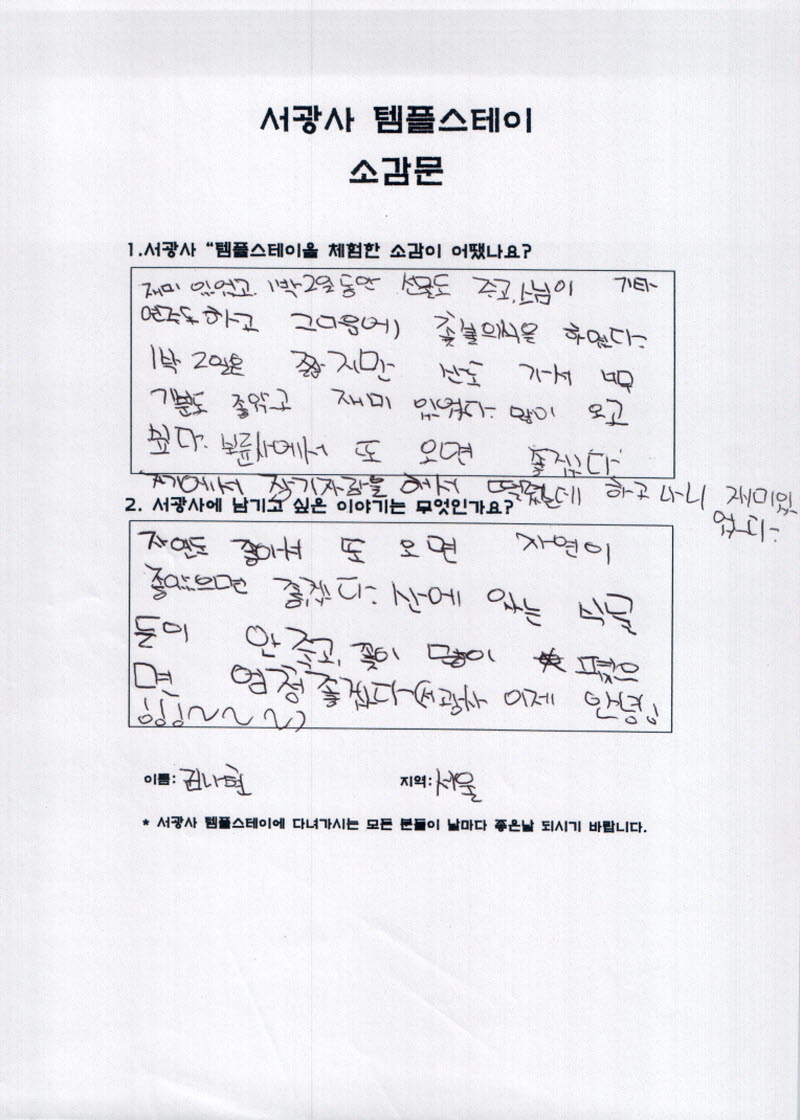 서광사 템플스테이
소감문
1.서광사 “템플스테이을 체험한 소감이 어땠나요?
재미 있었고. 1박 2일 동안 선물도 주고, 스님이 기타
연주도 하고 그다음에, 촛불의식을 하였다.
1박 2일은 짧지만 산도 가서 너무
기분도 좋았고 재미 있었다. 많이 오고
싶다. 에서 또 오면 좋겠다
장기자랑을 해서 떨렸는데 하고 나니 재미있
었다.
2. 서광사에 남기고 싶은 이야기는 무엇인가요?
자연도 좋아서 또 오면 자연이
좋았으면 좋겠다. 산에 있는 식물
들이 안 죽고, 꽃이 많이 폈으
면 좋겠다~(서광사 이제 안녕!
!!!~~~~)
이름: 김나현 지역: 서울
* 서광사 템플스테이에 다녀가시는 모든 분들이 날마다 좋은날 되시기 바랍니다.